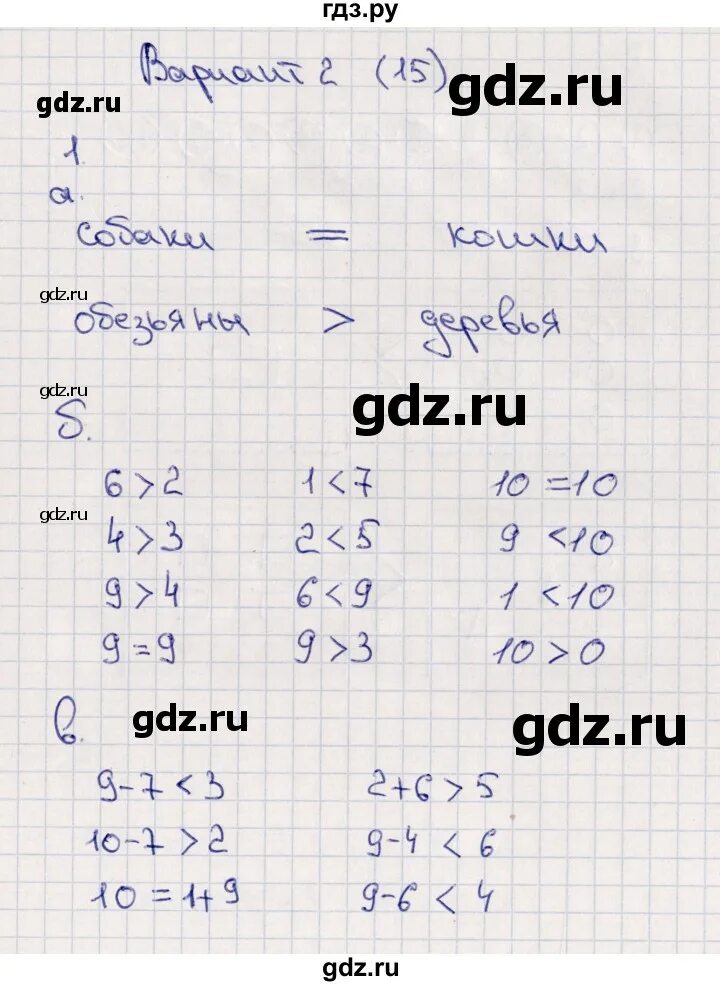 гдз.ру
Вариант 2 (15)
gdz.ru
gdz.ru
1.
а.
собаки = кошки
gdz.ru
обезьяны > деревья
gdz.ru
gdz.ru
б.
6 > 2 1 < 7 10 = 10
gdz.ru
4 > 3 2 < 5 9 < 10
9 > 4 6 < 9 1 < 10
9 = 9 9 > 3 10 > 0
в.
gdz.ru
gdz.ru
9 - 7 < 3 2 + 6 > 5
10 - 7 > 2 9 - 4 < 6
10 = 1 + 9 9 - 6 < 4
gdz.ru